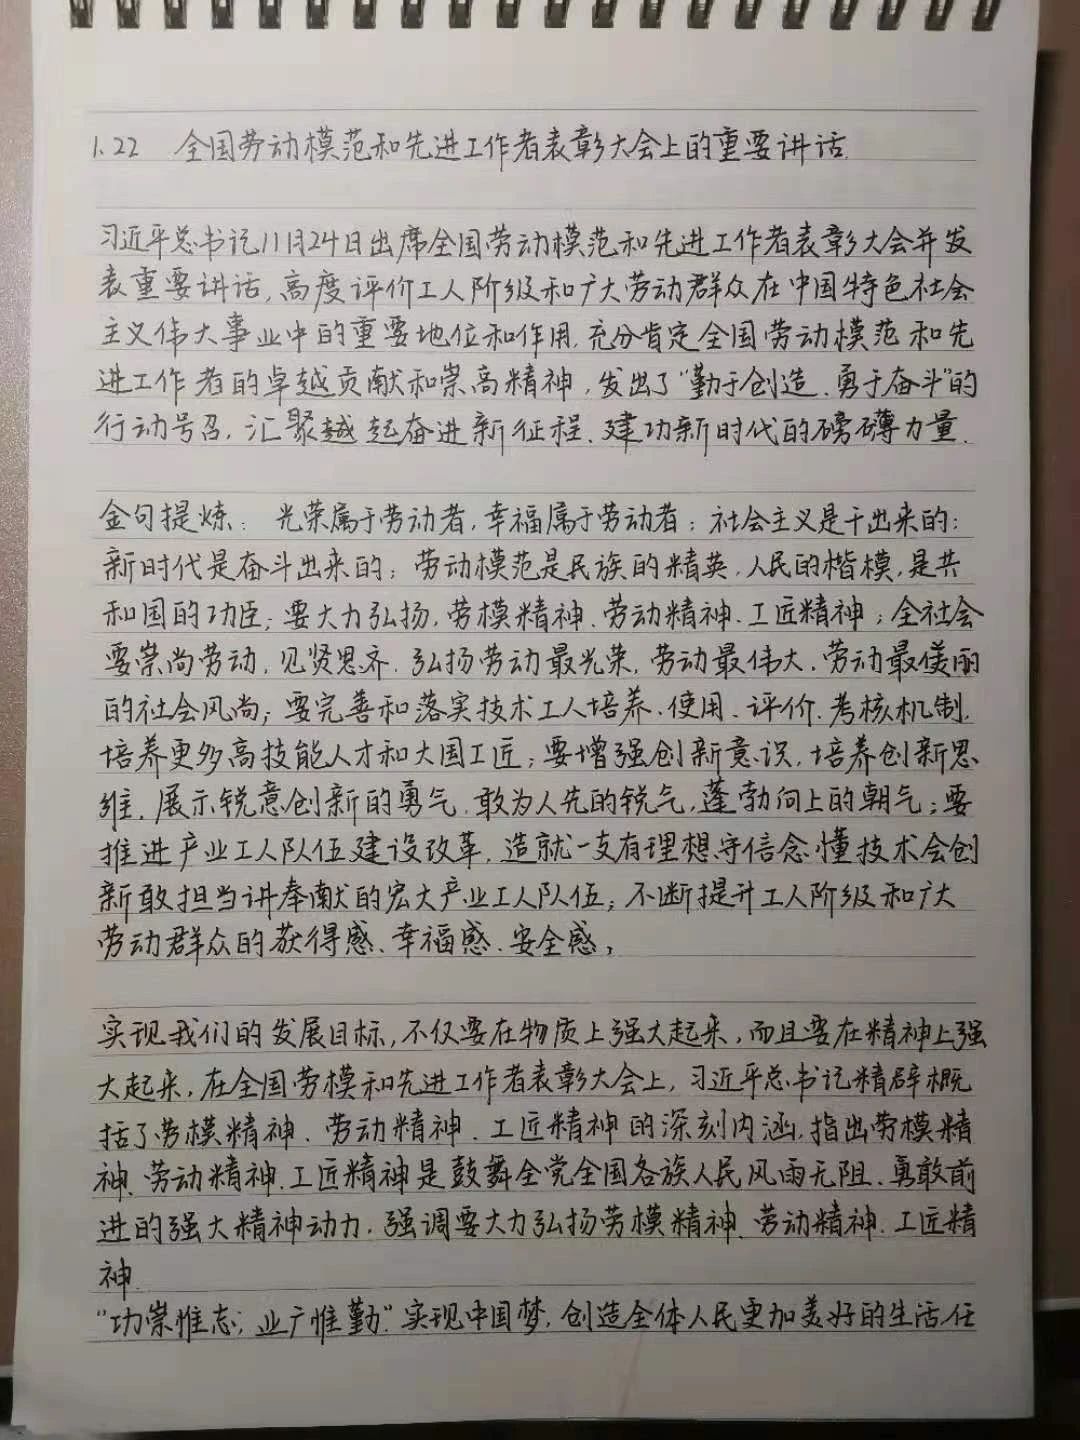 1.22 全国劳动模范和先进工作者表彰大会上的重要讲话.
习近平总书记11月24日出席全国劳动模范和先进工作者表彰大会并发
表重要讲话,高度评价工人阶级和广大劳动群众在中国特色社会
主义伟大事业中的重要地位和作用,充分肯定全国劳动模范和先
进工作者的卓越贡献和崇高精神,发出了“勤于创造、勇于奋斗”的
行动号召,汇聚越起奋进新征程、建功新时代的磅礴力量.
金句提炼:光荣属于劳动者,幸福属于劳动者;社会主义是干出来的;
新时代是奋斗出来的;劳动模范是民族的精英,人民的楷模,是共
和国的功臣;要大力弘扬,劳模精神、劳动精神、工匠精神;全社会
要崇尚劳动,见贤思齐,弘扬劳动最光荣,劳动最伟大,劳动最美丽
的社会风尚;要完善和落实技术工人培养、使用、评价、考核机制,
培养更多高技能人才和大国工匠;要增强创新意识,培养创新思
维,展示锐意创新的勇气,敢为人先的锐气,蓬勃向上的朝气;要
推进产业工人队伍建设改革,造就一支有理想守信念懂技术会创
新敢担当讲奉献的宏大产业工人队伍;不断提升工人阶级和广大
劳动群众的获得感、幸福感、安全感;
实现我们的发展目标,不仅要在物质上强大起来,而且要在精神上强
大起来,在全国劳模和先进工作者表彰大会上,习近平总书记精辟概
括了劳模精神、劳动精神、工匠精神的深刻内涵,指出劳模精
神、劳动精神、工匠精神是鼓舞全党全国各族人民风雨无阻、勇敢前
进的强大精神动力,强调要大力弘扬劳模精神、劳动精神、工匠精
神.
“功崇惟志;业广惟勤”.实现中国梦,创造全体人民更加美好的生活,任